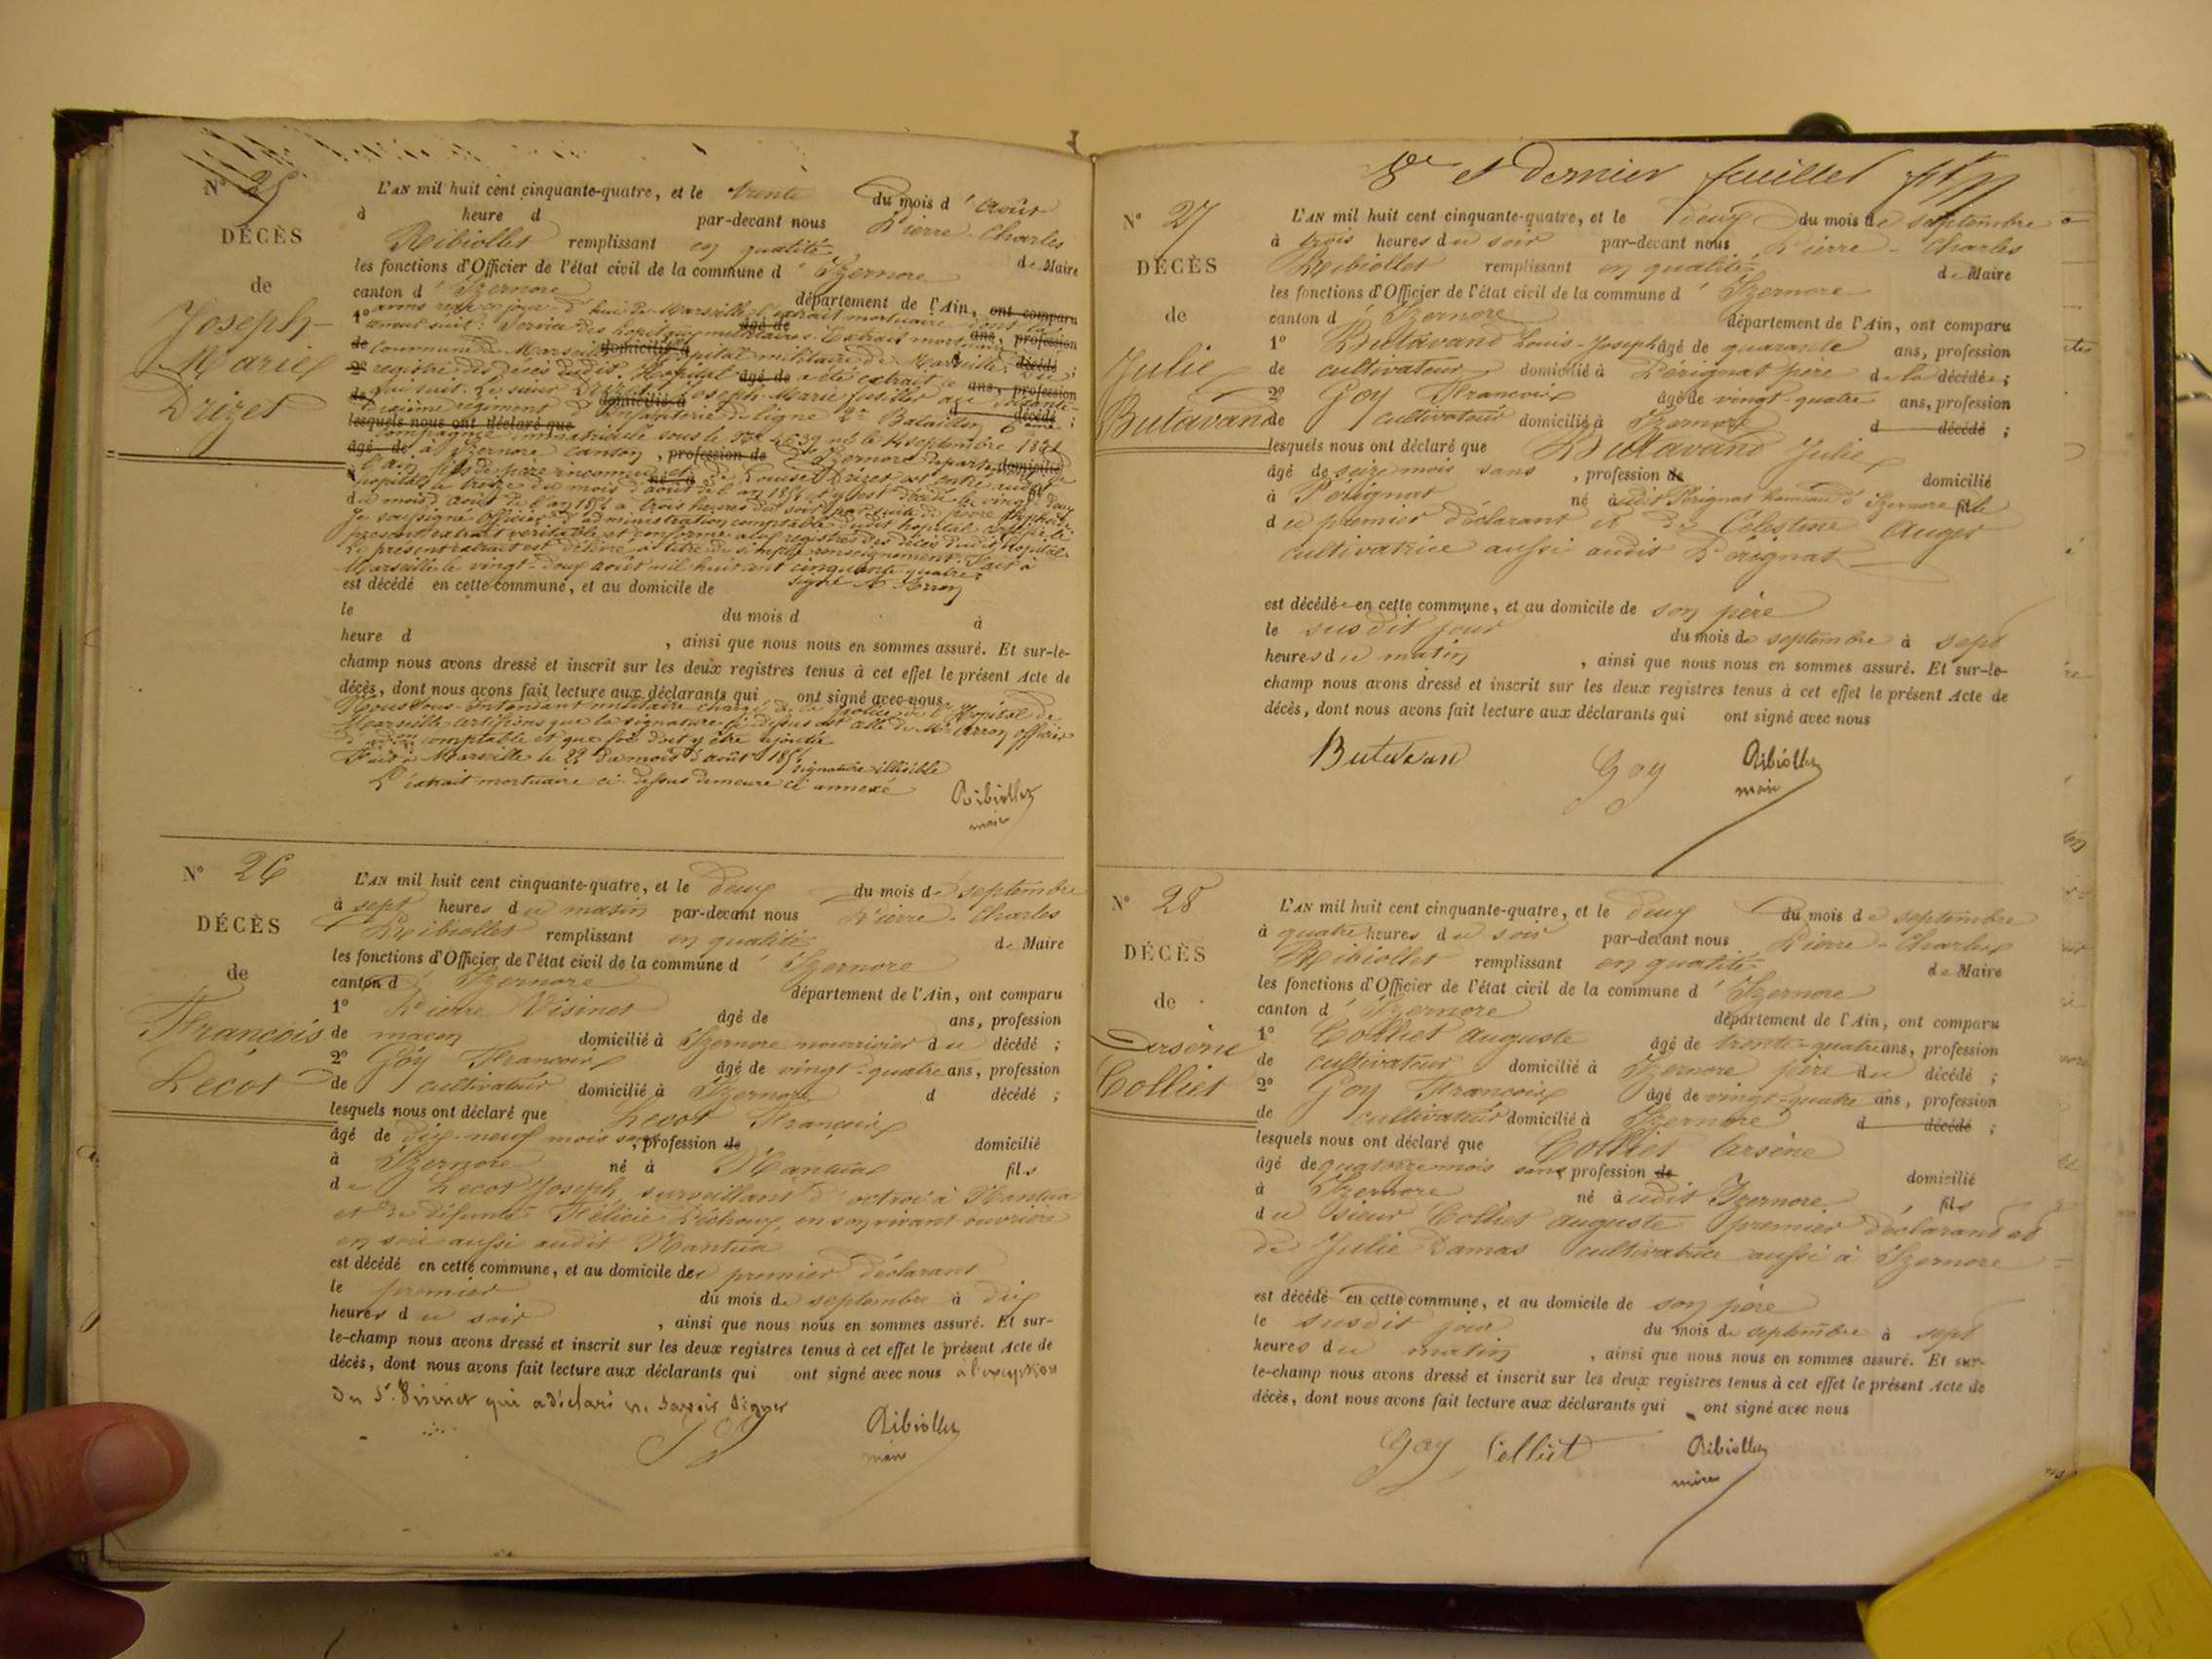 N° 25
DÉCÈS
de
Joseph-
Marie
Drizet
L'AN mil huit cent cinquante-quatre, et le trente du mois d'Août
à heure d par-devant nous Pierre-Charles
Ribiollet remplissant en qualité de Maire
les fonctions d'Officier de l'état civil de la commune d'Izernore
canton d'Izernore département de l'Ain, ont comparu
1° avons reçu ce jour d'hui de Marseille l'extrait mortuaire dont la
teneur suit: Service des hopitaux militaires. Extrait mortuaire
commune de Marseille hopital militaire de Marseille. Du
registre des décès dudit Hopital a été extrait ce
qui suit. Le sieur Drizet Joseph-Marie fusillier au
régiment d'Infanterie de ligne 2e Bataillon 6ème
Compagnie immatriculé sous le N° 4639 né le 14 septembre 1821
à Izernore canton d'Izernore département de
l'ain fils de père inconnu et de Louise Drizet est entré audit
hopital le treize du mois d'août de l'an 1854 et y est décédé le vingt deux
du mois d'août de l'an 1854 à trois heures du soir par suite de fièvre typhoïde
Je soussigné Officier d'administration comptable dudit hopital certifie le
présent extrait véritable et conforme aux registres des décès dudit hopital
Le présent extrait est délivré à titre de simple renseignement. Fait à
Marseille le vingt-deux août mil huit cent cinquante quatre
est décédé en cette commune, et au domicile de signé
le du mois d à
heure d , ainsi que nous nous en sommes assuré. Et sur-le-
champ nous avons dressé et inscrit sur les deux registres tenus à cet effet le présent Acte de
décès, dont nous avons fait lecture aux déclarants qui ont signé avec nous
Nous Sous-Intendant militaire chargé de la police de l'Hopital de
Marseille certifions que la signature ci-dessus est celle de Mr officier
d'adon comptable et que foi doit y être ajoutée
Fait à Marseille le 22 du mois d'août 1854 signature illisible
L'extrait mortuaire ci-dessus demeure ci annexé
Ribiollet
maire
N° 26
DÉCÈS
de
François
Lecot
L'AN mil huit cent cinquante-quatre, et le deux du mois de septembre
à sept heures du matin par-devant nous Pierre-Charles
Ribiollet remplissant en qualité de Maire
les fonctions d'Officier de l'état civil de la commune d'Izernore
canton d'Izernore département de l'Ain, ont comparu
1° Pierre Visinet âgé de ans, profession
de maçon domicilié à Izernore nourricier du décédé ;
2° Goy François âgé de vingt-quatre ans, profession
de cultivateur domicilié à Izernore d décédé ;
lesquels nous ont déclaré que Lecot François
âgé de dix-neuf mois sans, profession de domicilié
à Izernore né à Nantua fils
de Lecot Joseph surveillant d'octroi à Nantua
et de défunte Félicie Déchoux, en son vivant ouvrière
en soie aussi audit Nantua
est décédé en cette commune, et au domicile de premier déclarant
le premier du mois de septembre à dix
heures du soir , ainsi que nous nous en sommes assuré. Et sur-
le-champ nous avons dressé et inscrit sur les deux registres tenus à cet effet le présent Acte de
décès, dont nous avons fait lecture aux déclarants qui ont signé avec nous à l'exception
du Sr Visinet qui a déclaré ne savoir signer
Ribiollet
maire
8e et dernier feuillet
N° 27
DÉCÈS
de
Julie
Butavand
L'AN mil huit cent cinquante-quatre, et le deux du mois de septembre
à trois heures du soir par-devant nous Pierre-Charles
Ribiollet remplissant en qualité de Maire
les fonctions d'Officier de l'état civil de la commune d'Izernore
canton d'Izernore département de l'Ain, ont comparu
1° Butavand Louis-Joseph âgé de quarante ans, profession
de cultivateur domicilié à Pérignat père de la décédée ;
2° Goy François âgé de vingt-quatre ans, profession
de cultivateur domicilié à Izernore d décédé ;
lesquels nous ont déclaré que Butavand Julie
âgé de seize mois sans , profession de domicilié
à Pérignat né audit Pérignat hameau d'Izernore fille
du premier déclarant et de Célestine Auger
cultivatrice aussi audit Pérignat
est décédée en cette commune, et au domicile de son père
le susdit jour du mois de septembre à sept
heures du matin , ainsi que nous nous en sommes assuré. Et sur-le-
champ nous avons dressé et inscrit sur les deux registres tenus à cet effet le présent Acte de
décès, dont nous avons fait lecture aux déclarants qui ont signé avec nous
Butavan Goy Ribiollet
maire
N° 28
DÉCÈS
de
Arsène
Colliet
L'AN mil huit cent cinquante-quatre, et le deux du mois de septembre
à quatre heures du soir par-devant nous Pierre-Charles
Ribiollet remplissant en qualité de Maire
les fonctions d'Officier de l'état civil de la commune d'Izernore
canton d'Izernore département de l'Ain, ont comparu
1° Colliet auguste âgé de trente-quatre ans, profession
de cultivateur domicilié à Izernore père du décédé ;
2° Goy François âgé de vingt-quatre ans, profession
de cultivateur domicilié à Izernore d décédé ;
lesquels nous ont déclaré que Colliet arsène
âgé de quatorze mois sans profession de domicilié
à Izernore né audit Izernore fils
du sieur Colliet auguste premier déclarant et
de Julie Damas cultivatrice aussi à Izernore
est décédé en cette commune, et au domicile de son père
le susdit jour du mois de septembre à sept
heures du matin , ainsi que nous nous en sommes assuré. Et sur-
le-champ nous avons dressé et inscrit sur les deux registres tenus à cet effet le présent Acte de
décès, dont nous avons fait lecture aux déclarants qui ont signé avec nous
Goy Colliet Ribiollet
maire